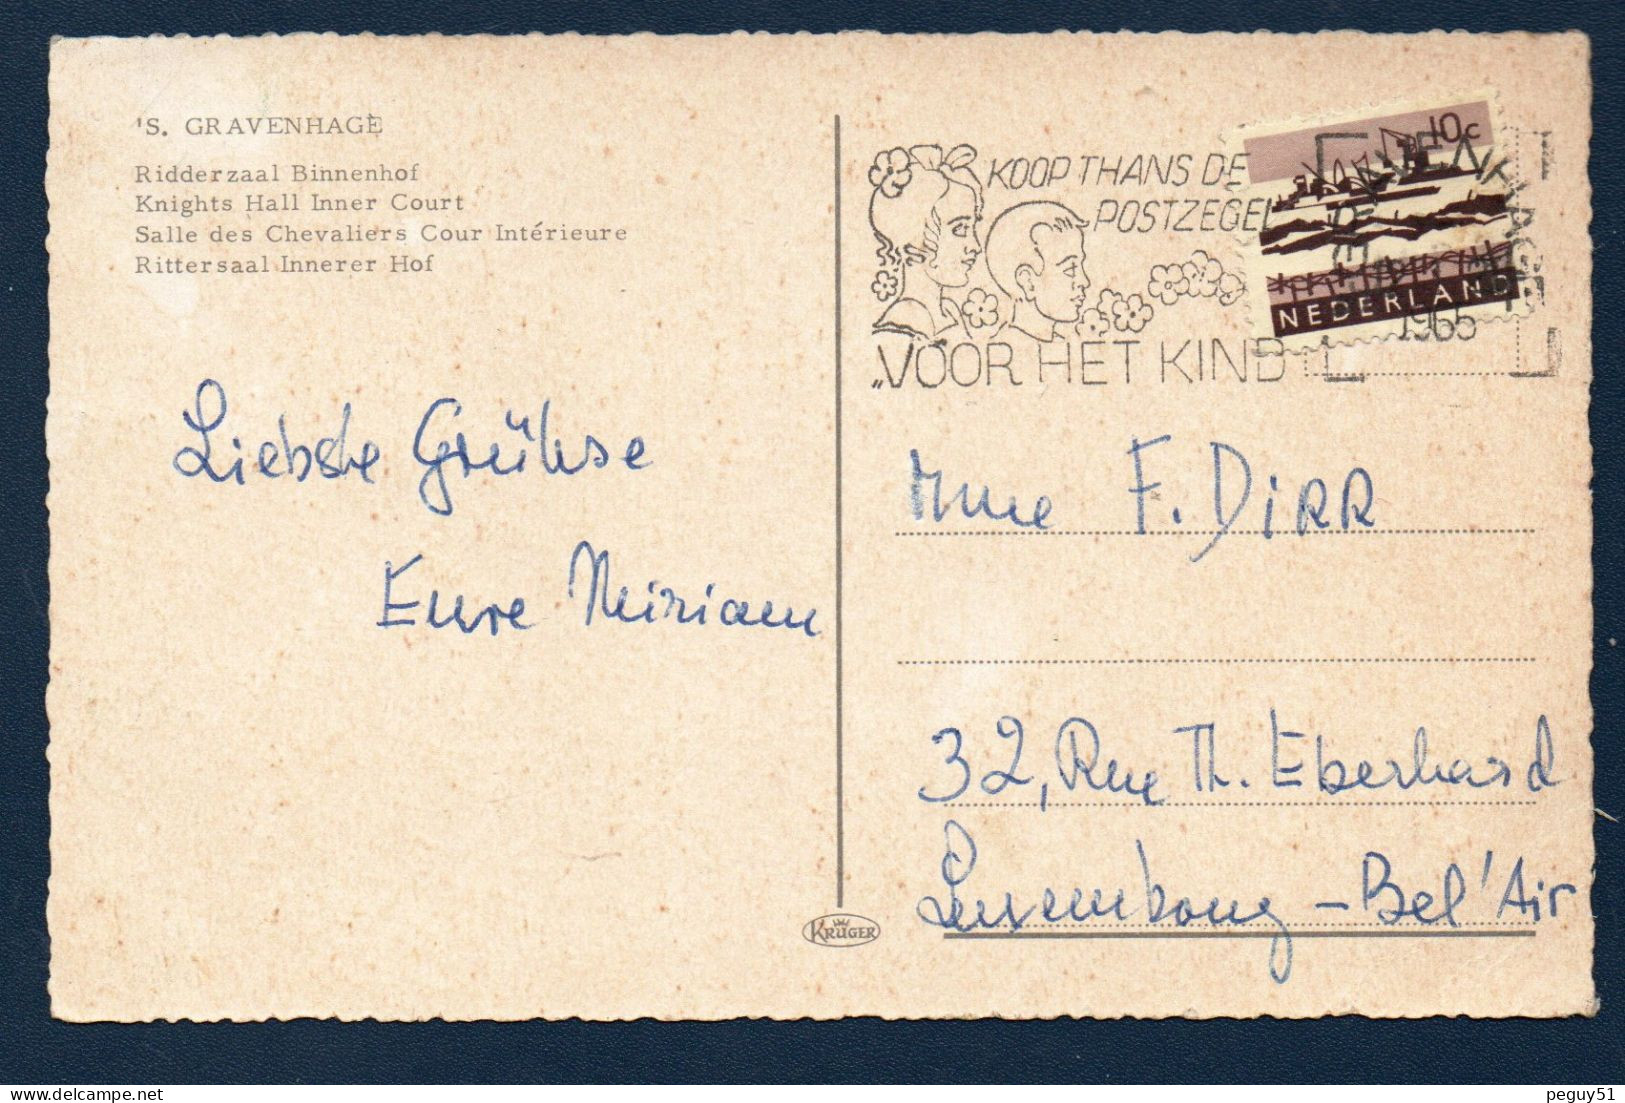 'S. GRAVENHAGE
Ridderzaal Binnenhof
Knights Hall Inner Court
Salle des Chevaliers Cour Intérieure
Rittersaal Innerer Hof
KOOP THANS DE
POSTZEGEL
„VOOR HET KIND
10c
NEDERLAND
'S-GRAVENHAGE
1965
Liebste Grühse
Eure Miriam
Mme F. DIRR
32, Rue Th. Eberhard
Luxembourg - Bel'Air
KRÜGER
peguy51